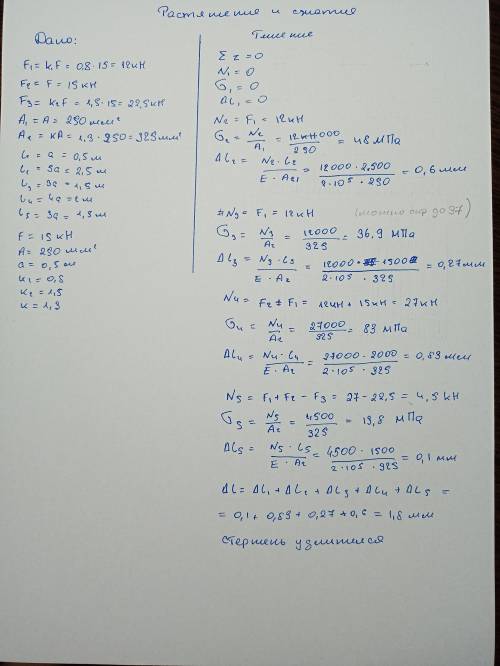 Растяжения и сжатия
Дано:
F₁ = k₁F = 0.8 · 15 = 12кН
F₂ = F = 15кН
F₃ = k₂F = 1,5 · 15 = 22,5кН
A₁ = A = 250 мм²
A₂ = кА = 1.3 · 250 = 325 мм²
l₁ = a = 0,5 м
l₂ = 5a = 2,5 м
l₃ = 3a = 1,5 м
l₄ = 4a = 2 м
l₅ = 3a = 1,5 м
F = 15 кН
A = 250 мм²
a = 0,5 м
k₁ = 0,8
k₂ = 1,5
k = 1,3
Решение
Σ z = 0
N₁ = 0
σ₁ = 0
Δl₁ = 0
N₂ = F₁ = 12кН
σ₂ = N₂/A₁ = 12000/250 = 48 МПа
Δl₂ = N₂ · l₂/E · A₁ = 12000 · 2,500/2 · 10⁵ · 250 = 0,6 мм
N₃ = F₁ = 12кН (можно окр до 37)
σ₃ = N₃/A₂ = 12000/325 = 36,9 МПа
Δl₃ = N₃ · l₃/E · A₂ = 12000 · 1500/2 · 10⁵ · 325 = 0,27мм
N₄ = F₂ + F₁ = 12кН + 15кН = 27кН
σ₄ = N₄/A₂ = 27000/325 = 83 МПа
Δl₄ = N₄ · l₄/E · A₂ = 27000 · 2000/2 · 10⁵ · 325 = 0,83мм
N₅ = F₁ + F₂ - F₃ = 27 - 22,5 = 4,5 кН
σ₅ = N₅/A₂ = 4500/325 = 13,8 МПа
Δl₅ = N₅ · l₅/E · A₂ = 4500 · 1500/2 · 10⁵ · 325 = 0,1 мм
Δl = Δl₁ + Δl₂ + Δl₃ + Δl₄ + Δl₅ =
= 0,1 + 0,83 + 0,27 + 0,6 = 1,8 мм
стержень удлинился